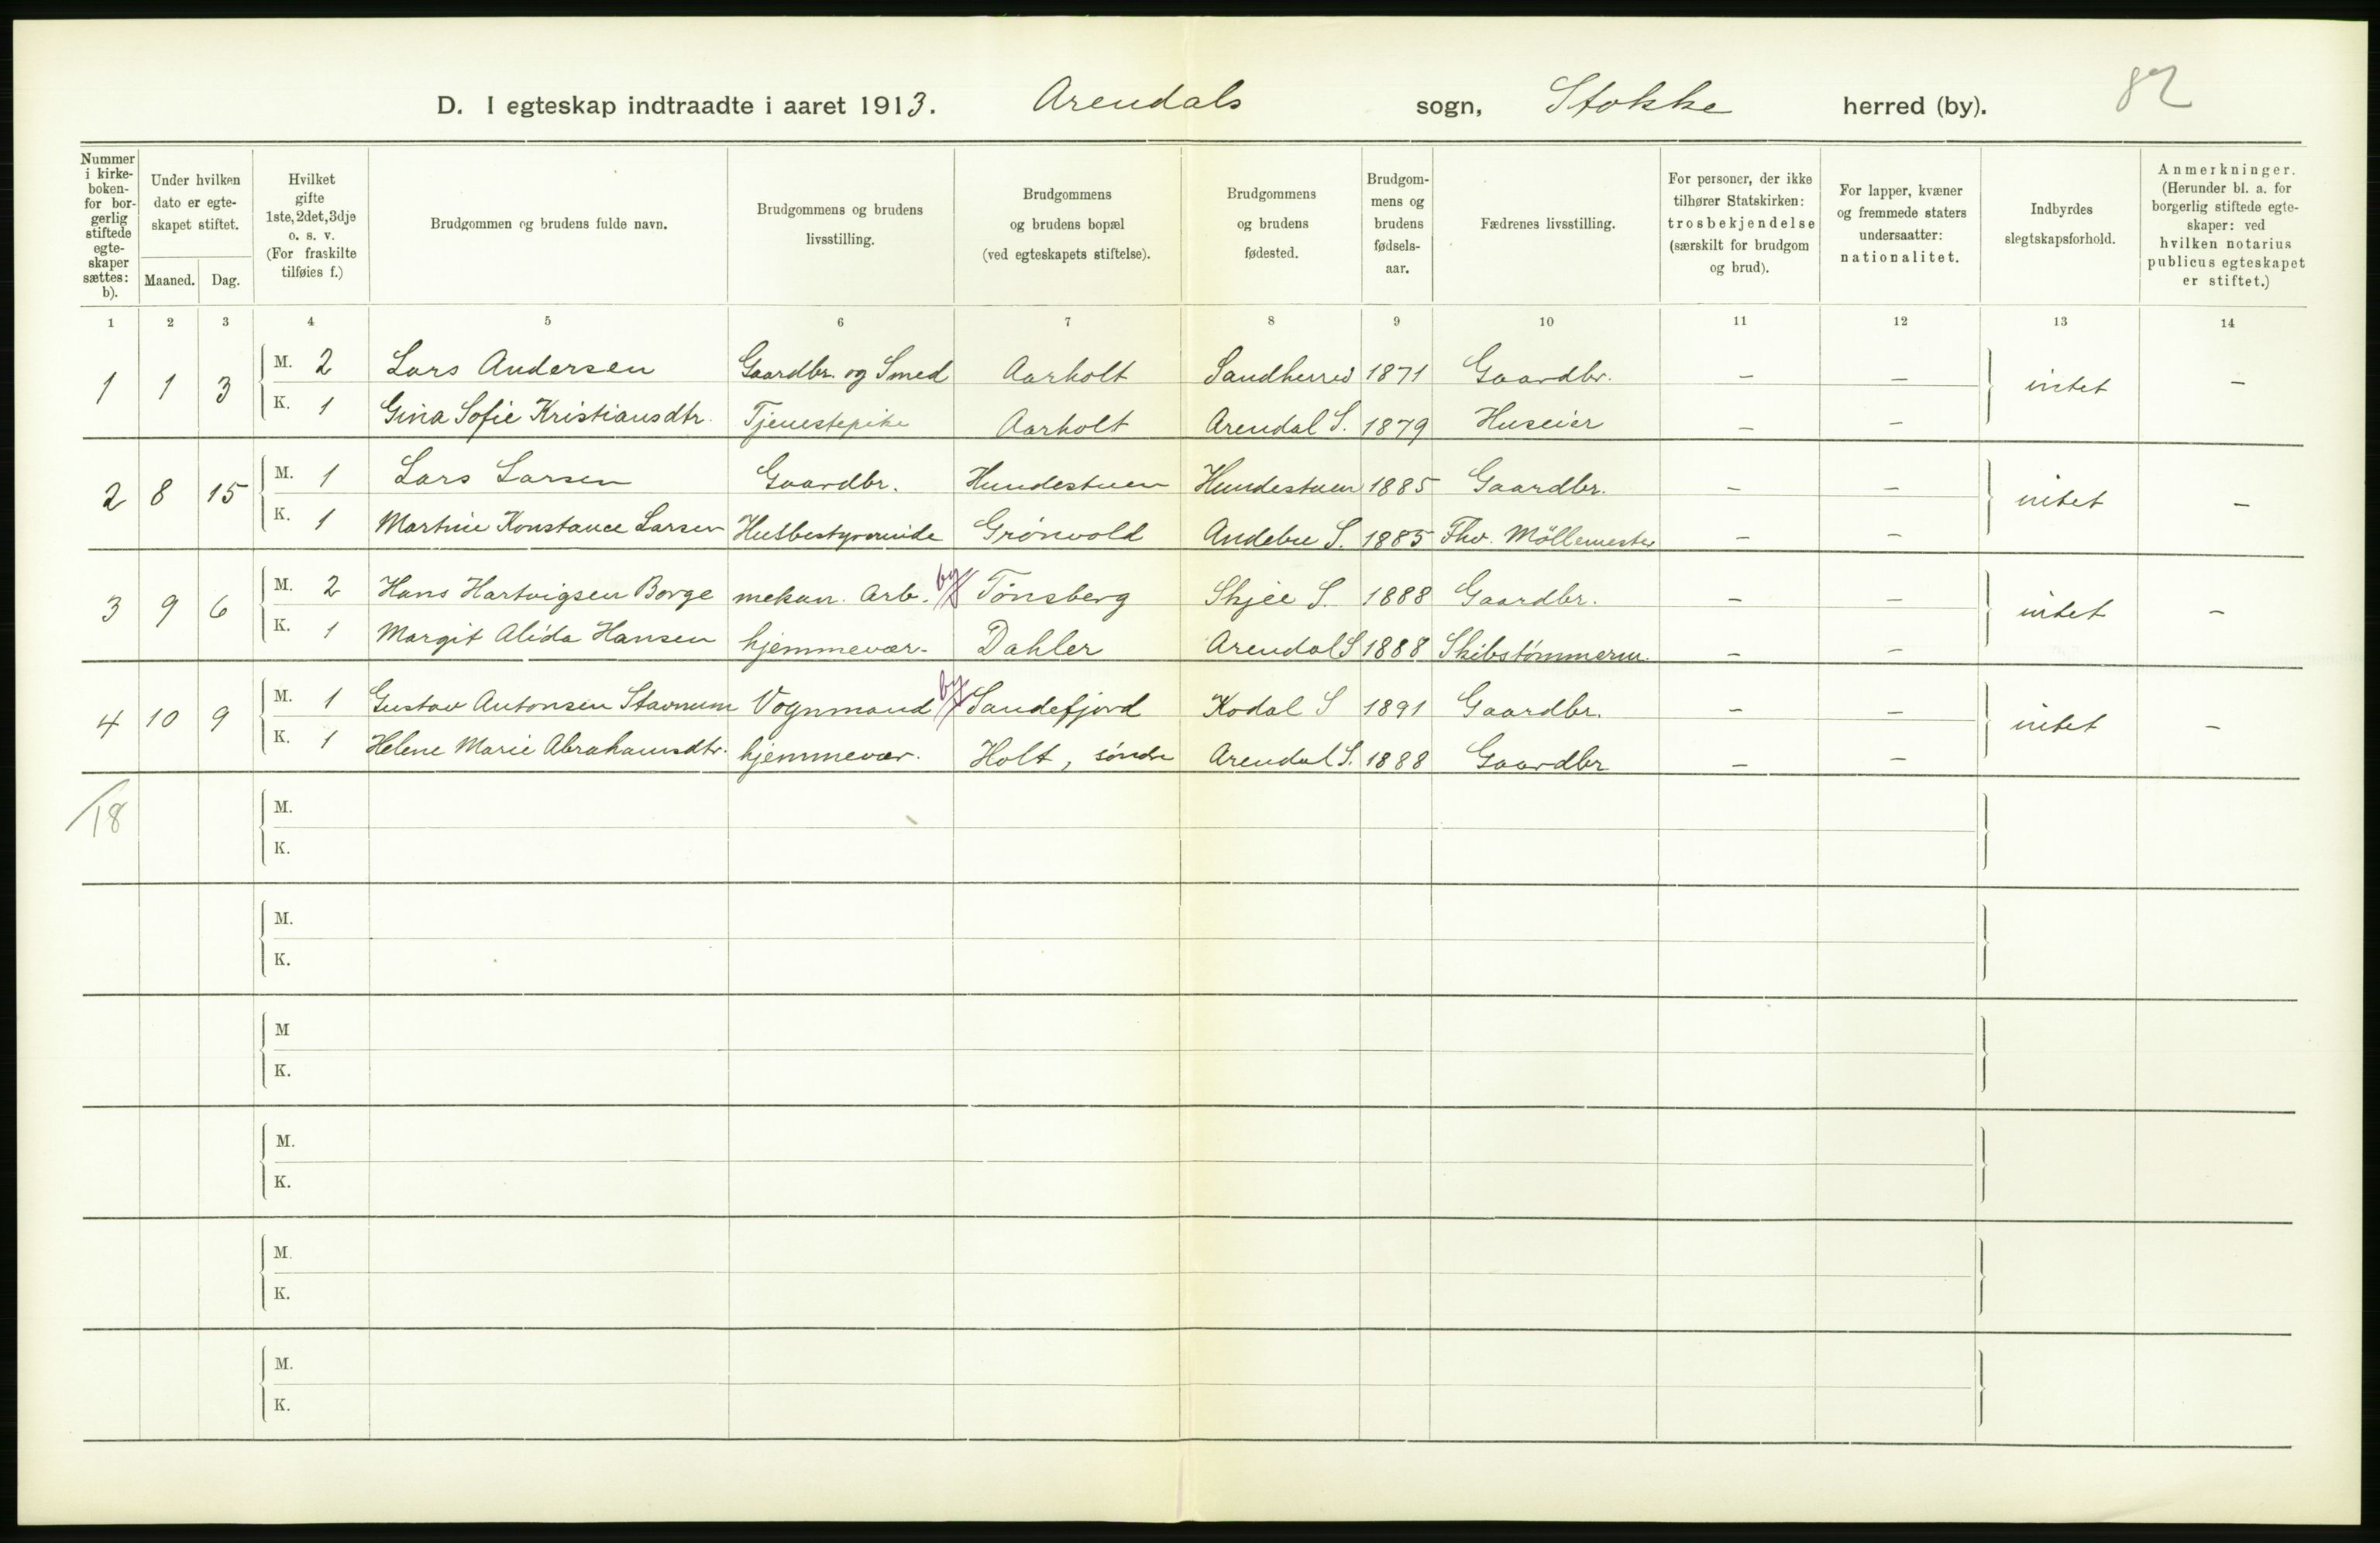 D. I egteskap indtraadte i aaret 1913. Arendals sogn, Stokke herred (by). 82
Nummer i kirkeboken- for borgerlig stiftede egteskaper sættes: b).
Under hvilken dato er egteskapet stiftet.
Maaned. Dag.
Hvilket gifte 1ste, 2det, 3dje o. s. v. (For fraskilte tilføies f.)
Brudgommen og brudens fulde navn.
Brudgommens og brudens livsstilling.
Brudgommens og brudens bopæl (ved egteskapets stiftelse).
Brudgommens og brudens fødested.
Brudgommens og brudens fødselsaar.
Fædrenes livsstilling.
For personer, der ikke tilhører Statskirken: trosbekjendelse (særskilt for brudgom og brud).
For lapper, kvæner og fremmede staters undersaatter: nationalitet.
Indbyrdes slegtskapsforhold.
Anmerkninger. (Herunder bl. a. for borgerlig stiftede egteskaper: ved hvilken notarius publicus egteskapet er stiftet.)
1 2 3 4 5 6 7 8 9 10 11 12 13 14
1 1 3 M. 2 Lars Andersen Gaardbr. og Smed Aarholt Sandherred 1871 Gaardbr. – – intet –
K. 1 Gina Sofie Kristiansdtr. Tjenestepike Aarholt Arendal S. 1879 Huseier – –
2 8 15 M. 1 Lars Larsen Gaardbr. Hundestuen Hundestuen 1885 Gaardbr. – – intet –
K. 1 Martine Konstance Larsen Husbestyrerinde Grönvold Andebu S. 1885 Fhv. Möllemester – –
3 9 6 M. 2 Hans Hartvigsen Borge mekan. Arb. by Tönsberg Skjee S. 1888 Gaardbr. – – intet –
K. 1 Margit Alida Hansen hjemmevær. Dahler Arendal S 1888 Skibstömmerm. – –
4 10 9 M. 1 Gustav Antonsen Stavnum Vognmand by Sandefjord Kodal S 1891 Gaardbr. – – intet –
K. 1 Helene Marie Abrahamsdtr. hjemmevær. Holt, söndre Arendal S. 1888 Gaardbr – –
18 M.
K.
M.
K.
M
K.
M.
K.
M.
K.
M.
K.